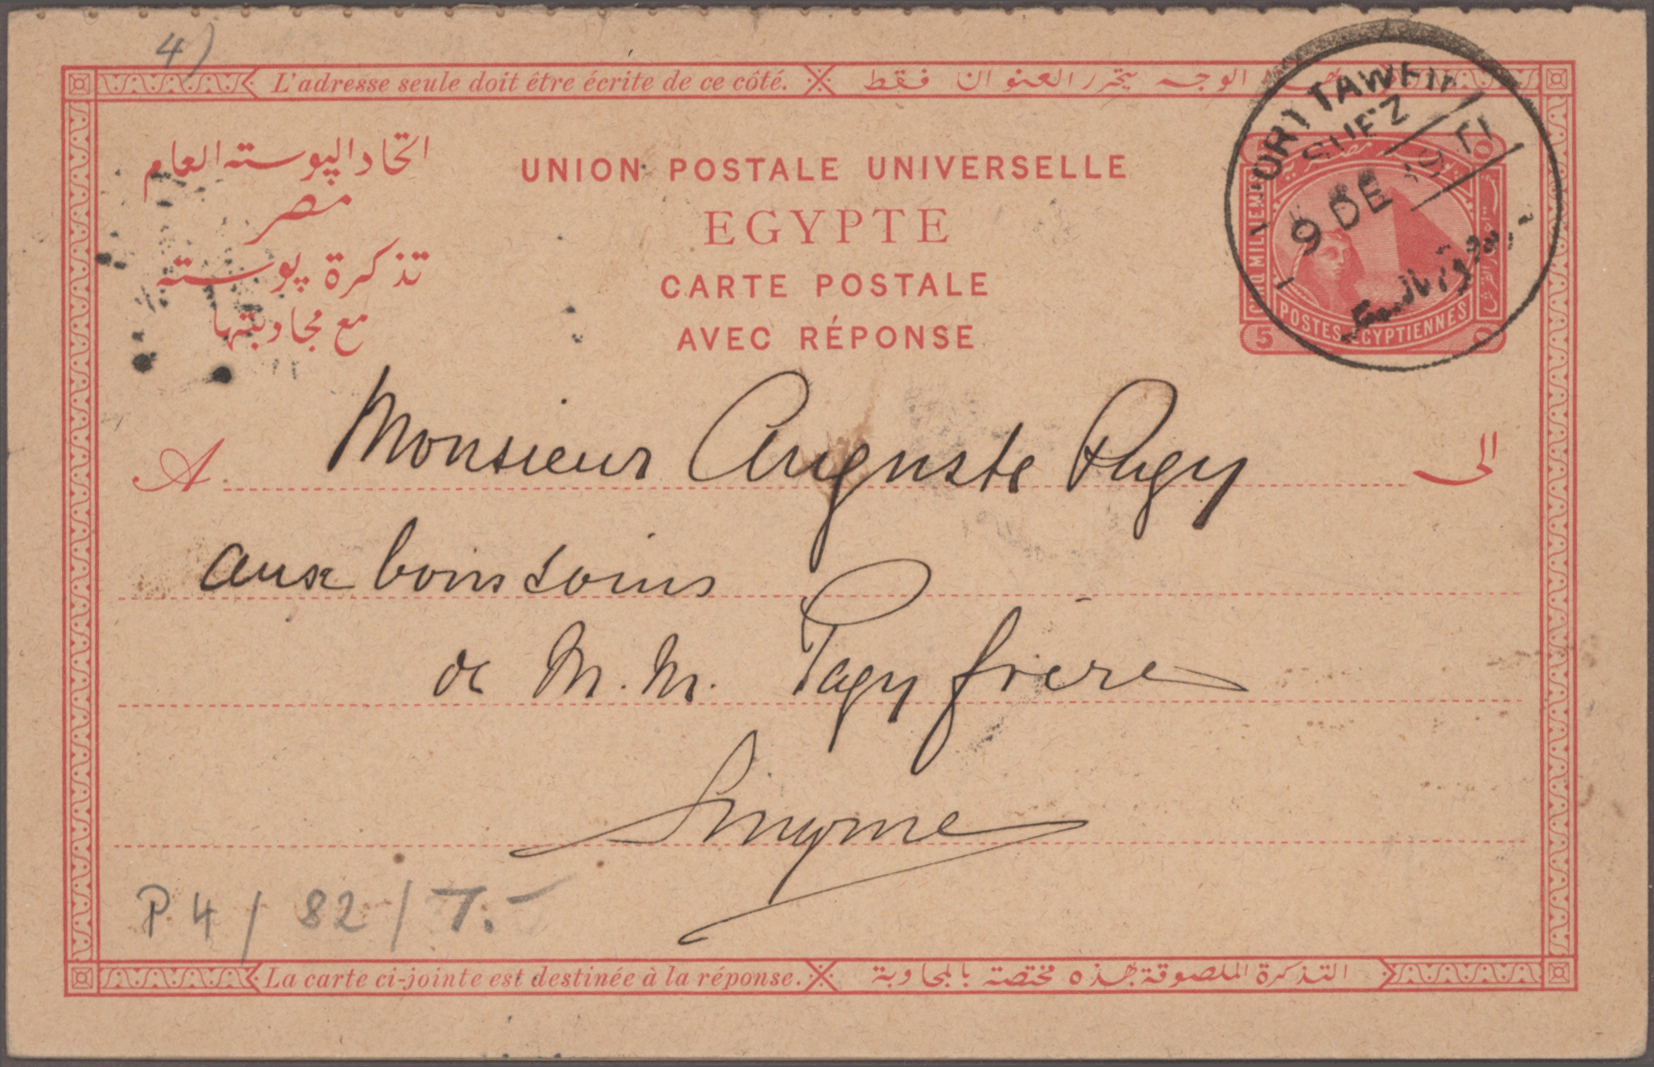 4)
L'adresse seule doit être écrite de ce côté.
الوجه يتحرر العنوان فقط
اتحاد البوسته العام
مصر
تذكرة بوسته
مع مجاوبتها
UNION POSTALE UNIVERSELLE
EGYPTE
CARTE POSTALE
AVEC RÉPONSE
PORT TAWFIK
SUEZ
9 DE
POSTES EGYPTIENNES
5
A
Monsieur Auguste Pagy
الى
aux bons soins
de M. M. Pagy frère
Smyrne
P 4 / 82 / 7.-
La carte ci-jointe est destinée à la réponse.
التذكرة الملصوقة بهذه مختصة بالمجاوبة